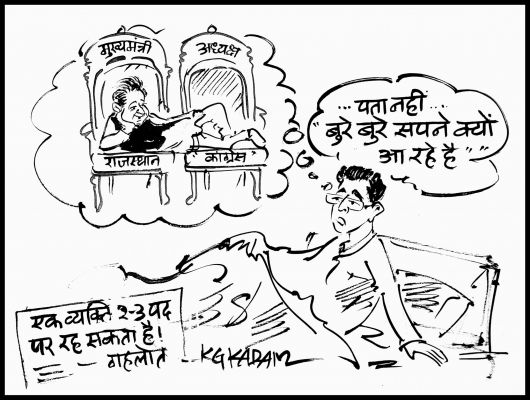 मुख्यमंत्री
अध्यक्ष
राजस्थान
"कांग्रेस"
...पता नहीं...
"बुरे बुरे सपने क्यों
आ रहे है""
एक व्यक्ति २-३ पद
पर रह सकता है!
गहलोत
KGKADAM